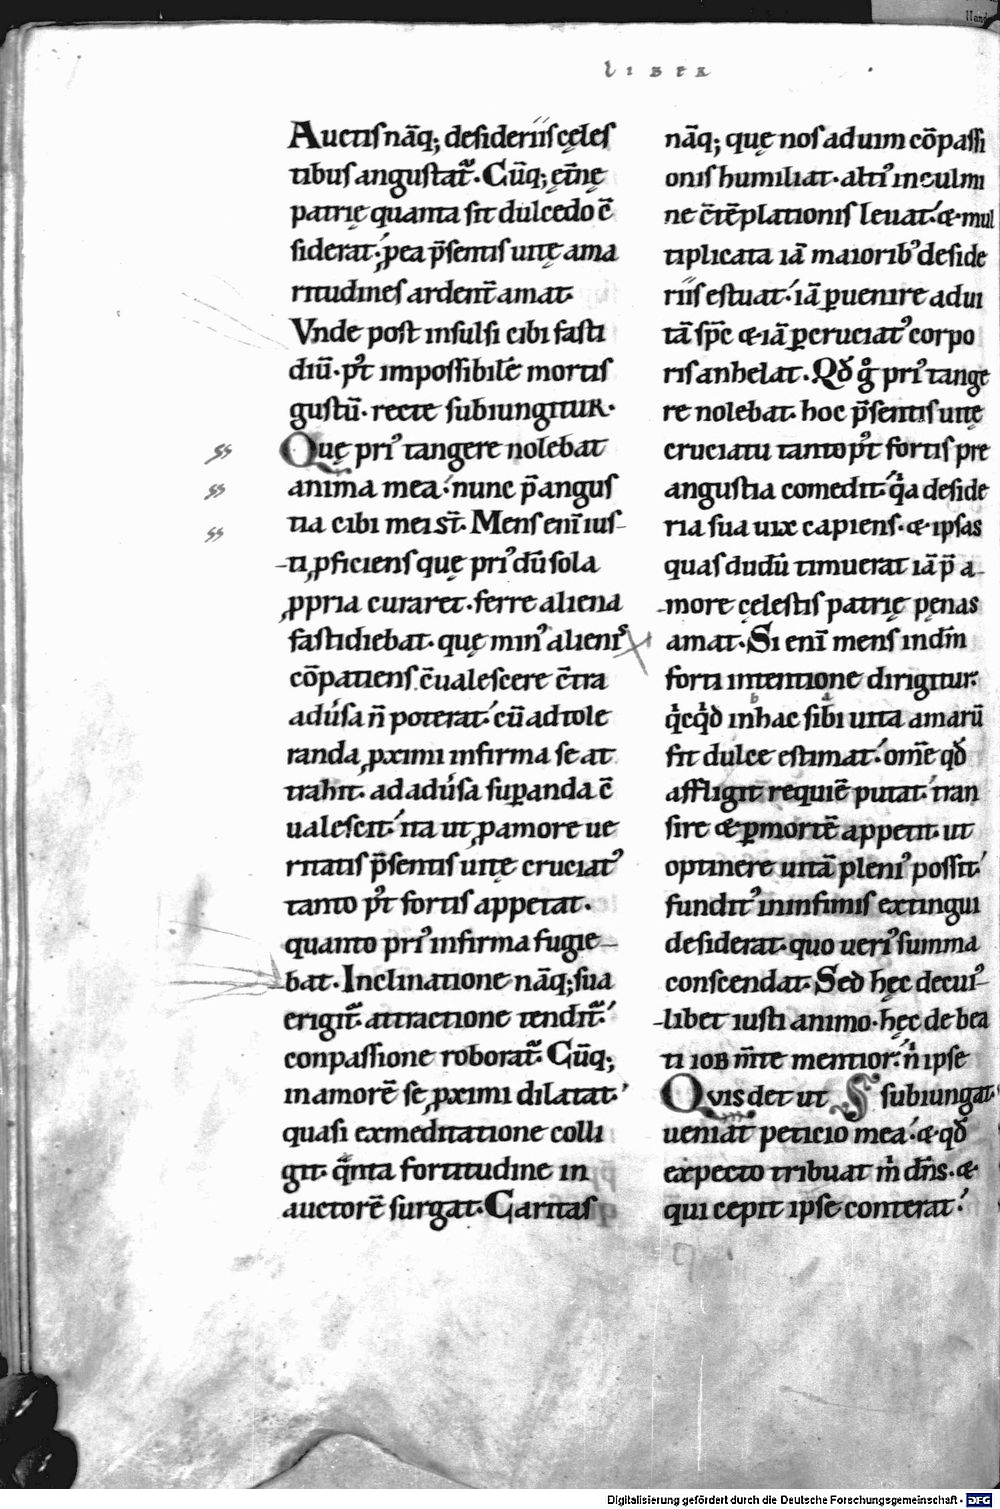 LIBER
Auctiſ nāq; deſideriiſ cęleſ
tibuſ anguſtat᷑. Cūq; ęt̄nę
patrię quanta ſit dulcedo c̄
ſiderat: ꝓ ea p̄ſentiſ uitę ama
ritudineſ ardent̄ amat.
Vnde poſt inſulſi cibi faſti
diū. pꝰt impoſſibilē mortiſ
guſtū. recte ſubiungitur.
Quę priꝰ tangere nolebat
anima mea: nunc p̄ anguſ
tia cibi mei st̄. Menſ enī iuſ-
-ti ꝓficienſ quę priꝰ dū ſola
ꝓpria curaret. ferre aliena
faſtidiebat. quę minꝰ alieniſ
cōpatienſ c̄ualeſcere c̄tra
aduſa n̄ poterat: cū ad tole
randa ꝓximi infirma ſe at
trahit. ad aduſa ſuꝑanda c̄
ualeſcit: ita ut ꝓ amore ue
ritatiſ p̄ſentiſ uitę cruciatꝰ
tanto pꝰt fortiſ appetat.
quanto priꝰ infirma fugie-
bat. Inclinatione nāq; ſua
erigit᷑. attractione tendit᷑:
conpaſſione roborat᷑. Cūq;
in amorē ſe ꝓximi dilatat.
quaſi ex meditatione colli
git. qͣnta fortitudine in
auctorē ſurgat. Caritaſ
nāq; quę noſ ad uim cōpaſſi
oniſ humiliat. altiꝰ in culmi
ne c̄tēplationiſ leuat: & mul
tiplicata iā maioribꝰ deſide
riiſ eſtuat: iā ꝑuenire ad ui
tā ſp̄c & iā ꝑ cruciatꝰ corpo
riſ anhelat. Qđ gͦ priꝰ tange
re nolebat. hoc p̄ſentiſ uitę
cruciatu tanto pꝰt fortiſ pre
anguſtia comedit: qͥa deſide
ria ſua uix capienſ. & ipſas
quaſ dudū timuerat iā p̄ a-
-more cęleſtiſ patrię pęnas
amat. Si enī menſ in dm̄
forti intentione dirigitur.
qͥcqͥd in hac ſibi uita amarū
ſit dulce eſtimat: om̄e qđ
affligit requiē putat: tran
ſire & ꝑ mortē appetit. ut
optinere uitā pleniꝰ poſſit:
funditꝰ in infimiſ extingui
deſiderat. quo ueriꝰ ſumma
conſcendat. Sed hęc de cui-
-libet iuſti animo. hęc de bea
ti iob m̄te mentior: n̄ ipſe
Qvis det ut ſubiungat.
ueniat peticio mea: & qđ
expecto tribuat m̄ dn̄s. &
qui cepit ipſe conterat:
Digitalisierung gefördert durch die Deutsche Forschungsgemeinschaft - DFG